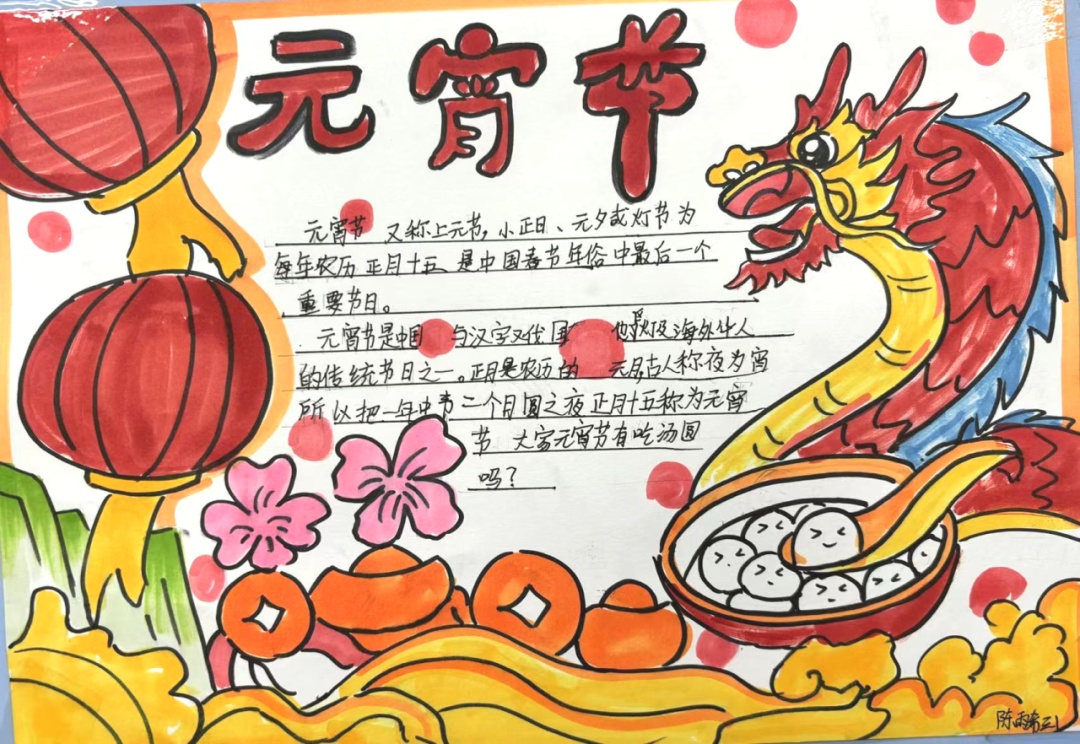 元宵节
元宵节 又称上元节,小正日、元夕或灯节为
每年农历正月十五 是中国春节年俗中最后一个
重要节日。
元宵节是中国 与汉字文化国 及海外华人
的传统节日之一。正月是农历的 元月古人称夜为宵
所以把一年中第二个月圆之夜正月十五称为元宵
节 大家元宵节有吃汤圆
吗?
陈雨